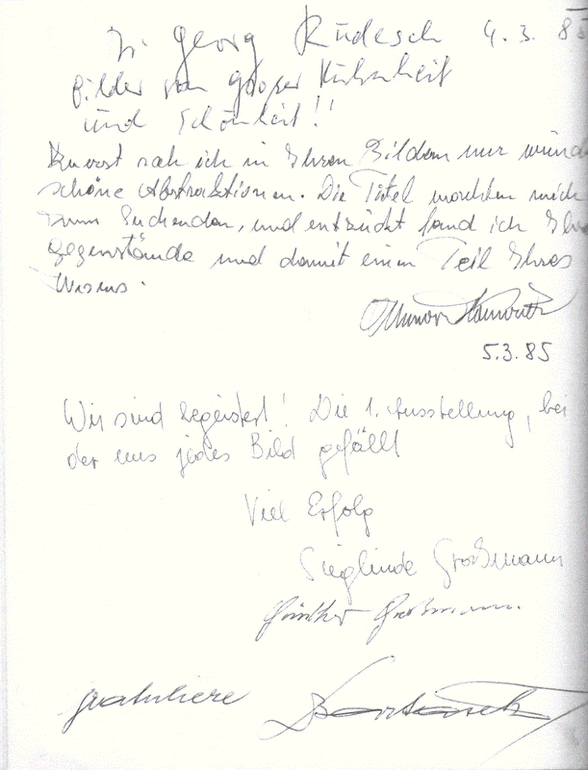 Georg Rüdesch 4.3.85
Bilder von großer Kühnheit
und Schönheit!!
Zuerst sah ich in Ihren Bildern nur wunder
schöne Abstraktionen. Die Titel machten mich
zum Suchenden, und entzückt fand ich Ihre
Gegenstände und damit einen Teil Ihres
Wesens.
5.3.85
Wir sind begeistert! Die 1. Ausstellung, bei
der uns jedes Bild gefällt
Viel Erfolg
Sieglinde Großmann
Günther Großmann.
gratuliere